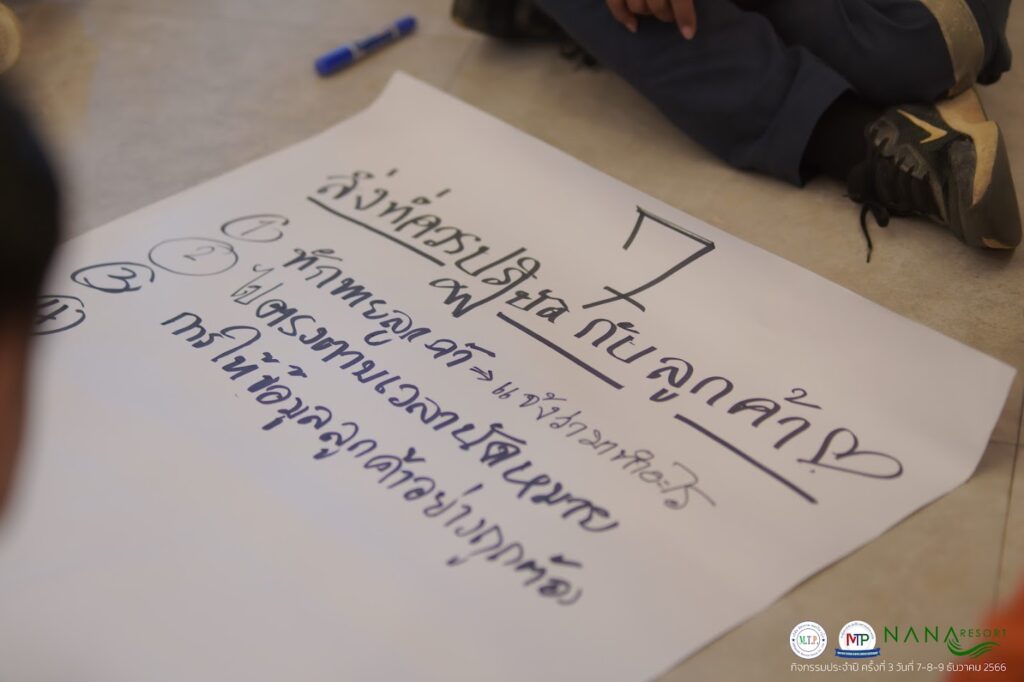 7
สิ่งที่ควร กับลูกค้า
① ทักทายลูกค้า → แจ้งว่ามาทำอะไร
② ไปตรงตามเวลานัดหมาย
③ การให้ข้อมูลลูกค้าอย่างถูกต้อง
④
M.T.P. MTP NANA RESORT
กิจกรรมประจำปี ครั้งที่ 3 วันที่ 7-8-9 ธันวาคม 2566